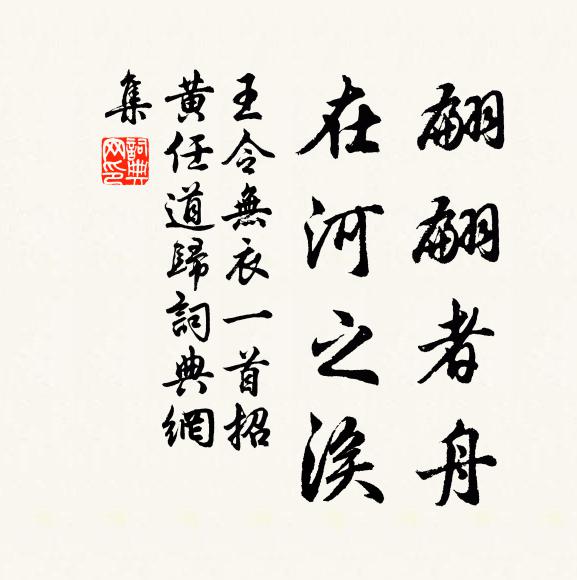 翩翩者舟
在河之涘
王令無衣一首招
黄任道歸詞典網
集
詞典網印